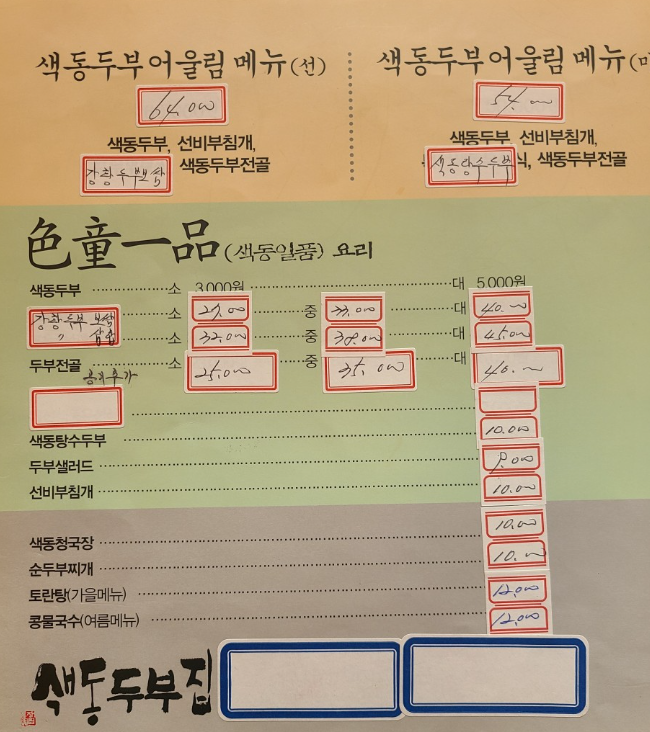 색동두부어울림메뉴(선)
64.000
색동두부, 선비부침개,
강황두부보쌈 색동두부전골
색동두부어울림메뉴(미
54.000
색동두부, 선비부침개,
색동탕수두부 식, 색동두부전골
色童一品(색동일품) 요리
색동두부 소 3,000원 대 5,000원
강황두부 보쌈 소 중 33.000 대 40.000
〃 삼합 소 32.000 중 38.000 대 45.000
두부전골 소 25.000 중 35.000 대 40.000
색동탕수두부 10.000
두부샐러드 9.000
선비부침개 10.000
색동청국장 10.000
순두부찌개 10.000
토란탕(가을메뉴) 12,000
콩물국수(여름메뉴) 12,000
색동두부집